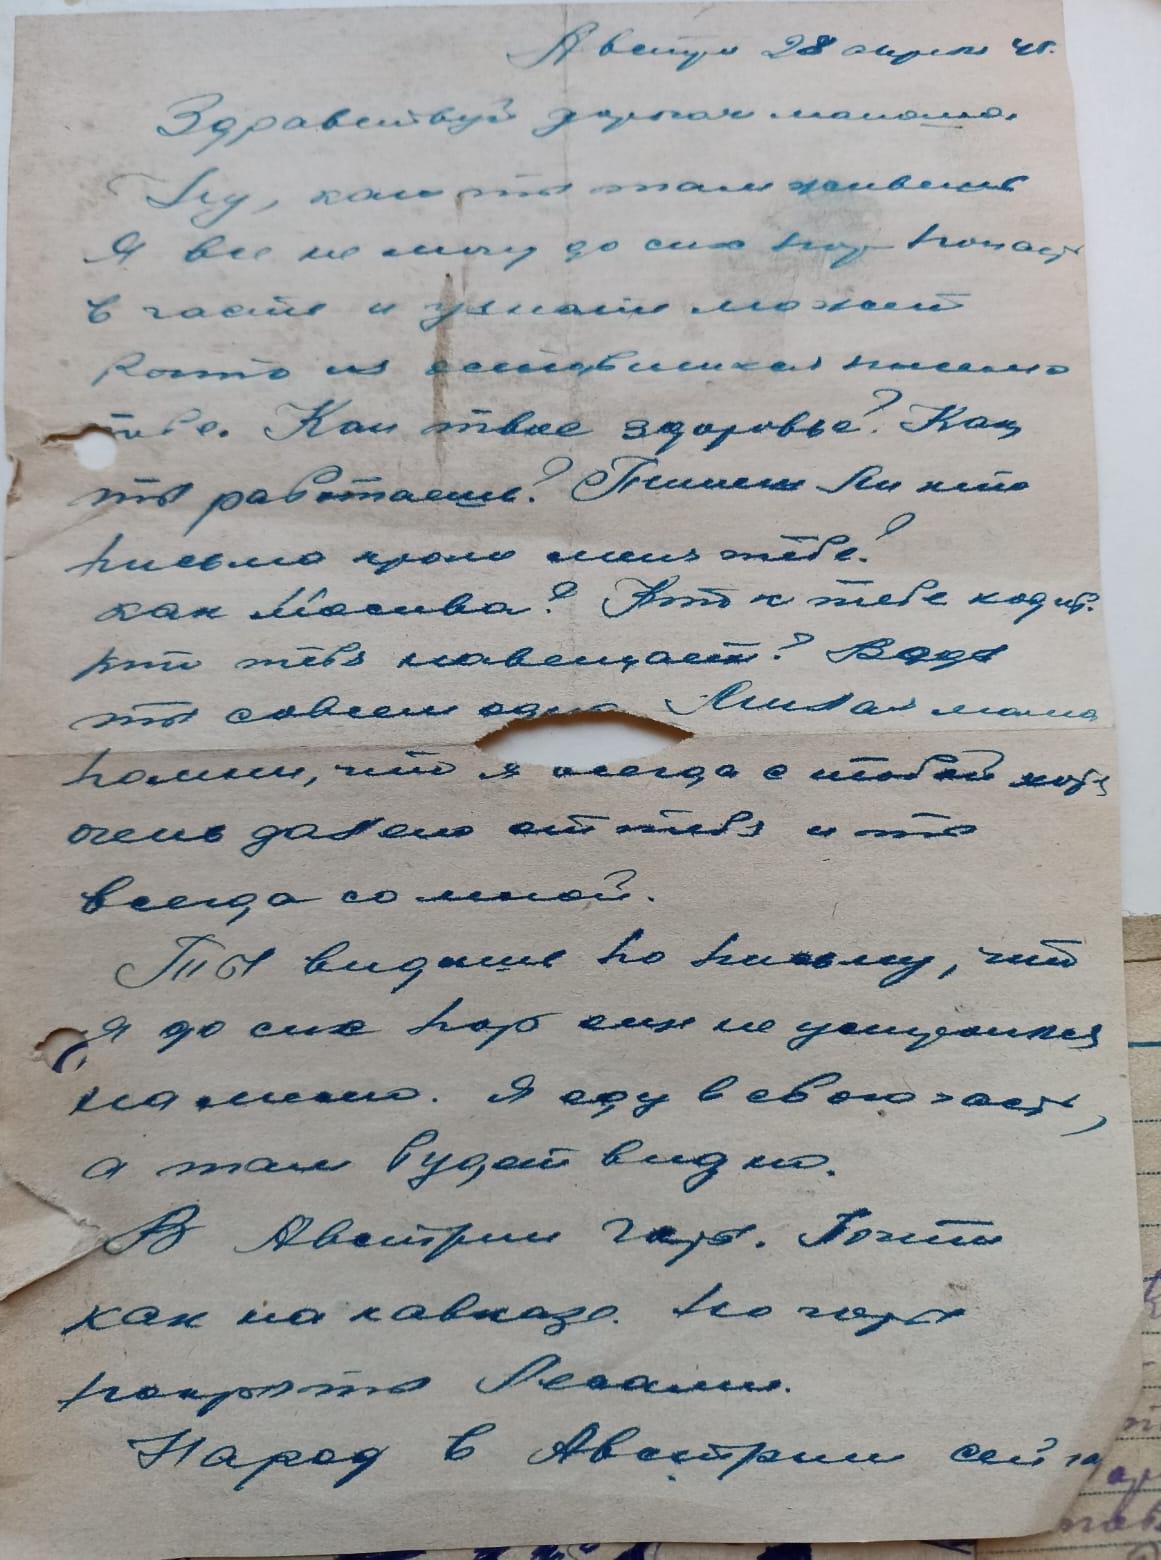 Австрия 28 апреля 45.
Здравствуй дорогая мамаша.
Ну, как ты там живешь
Я все не могу до сих пор попасть
в часть и узнать может
кто то из оставшихся писало
тебе. Как твое здоровье? Как
ты работаешь? Пишет ли кто
письма кроме меня тебе?
как Москва? Кто к тебе ходит.
кто тебя навещает? Ведь
ты совсем одна Милая мама
помни, что я всегда с тобой хотя
очень далеко от тебя и ты
всегда со мной.
Ты видишь по письму, что
я до сих пор еще не устроился
на место. Я еду в свою часть,
а там будет видно.
В Австрии горы. Почти
как на кавказе. но горы
покрыты лесами.
Народ в Австрии сейча